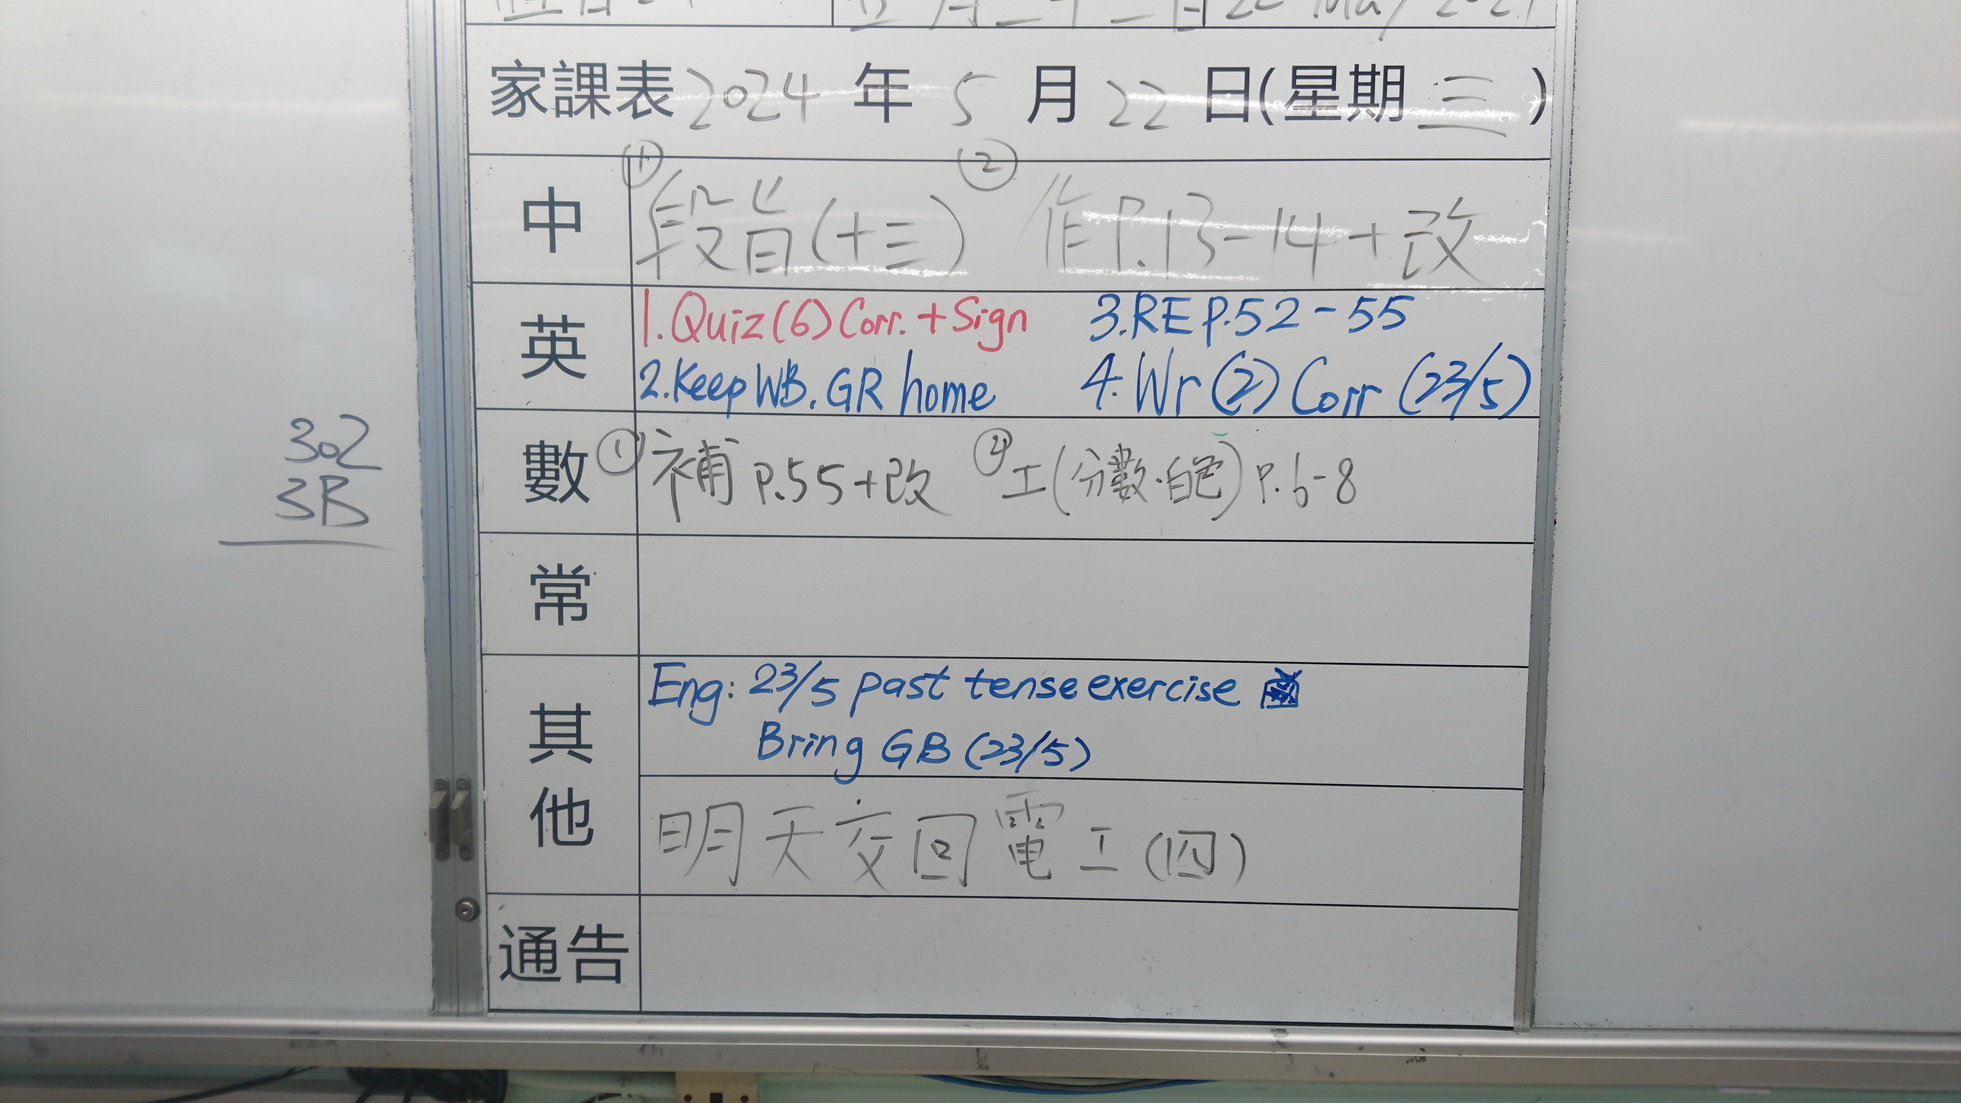 五月二十二日 22 May 2024
家課表 2024 年 5 月 22 日(星期 三 )
中 ① 段旨(十三) ② 作P.13-14+改
英 1.Quiz(6) Corr. + Sign 3.RE P.52-55
2.Keep WB. GR home 4.Wr (2) Corr (23/5)
數 ① 補 P.55+改 ② 工(分數.白色) P.6-8
常
其他 Eng: 23/5 past tense exercise
Bring GB (23/5)
明天交回電工(四)
通告
302
3B